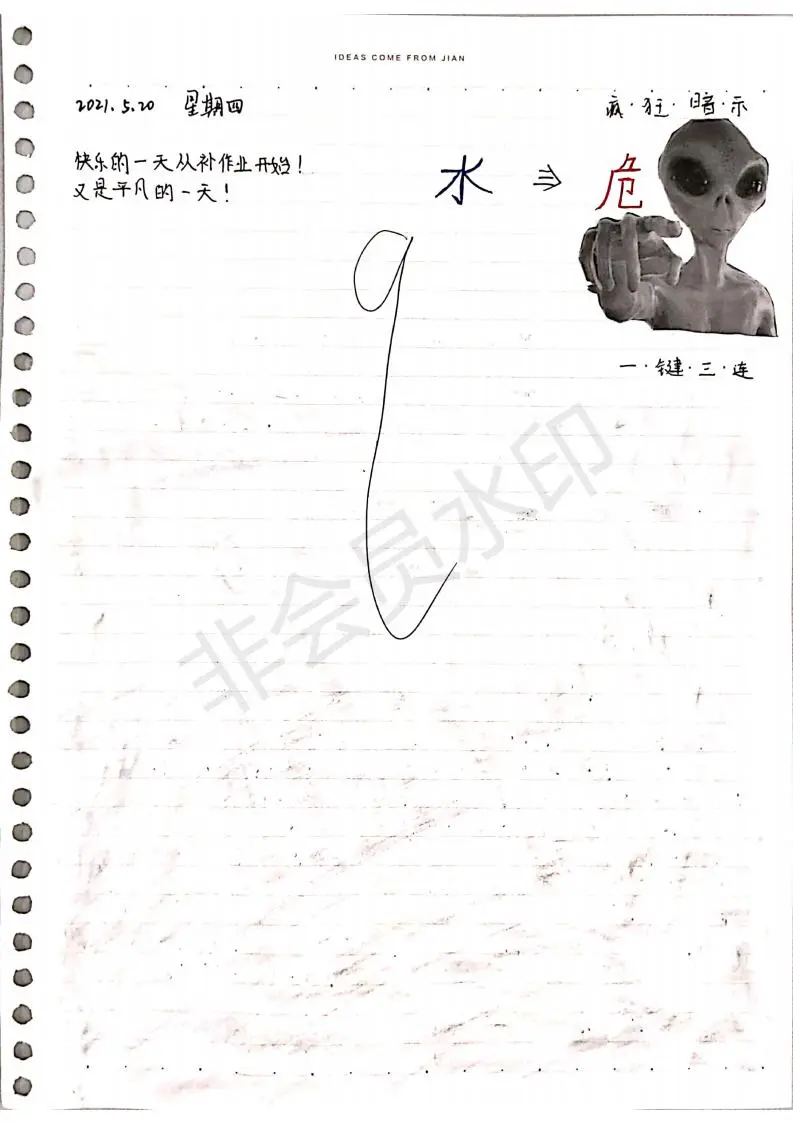 IDEAS COME FROM JIAN
2021.5.20 星期四
疯·狂·暗·示
快乐的一天从补作业开始！
又是平凡的一天！
水 ⇒ 危
一·键·三·连
非会员水印